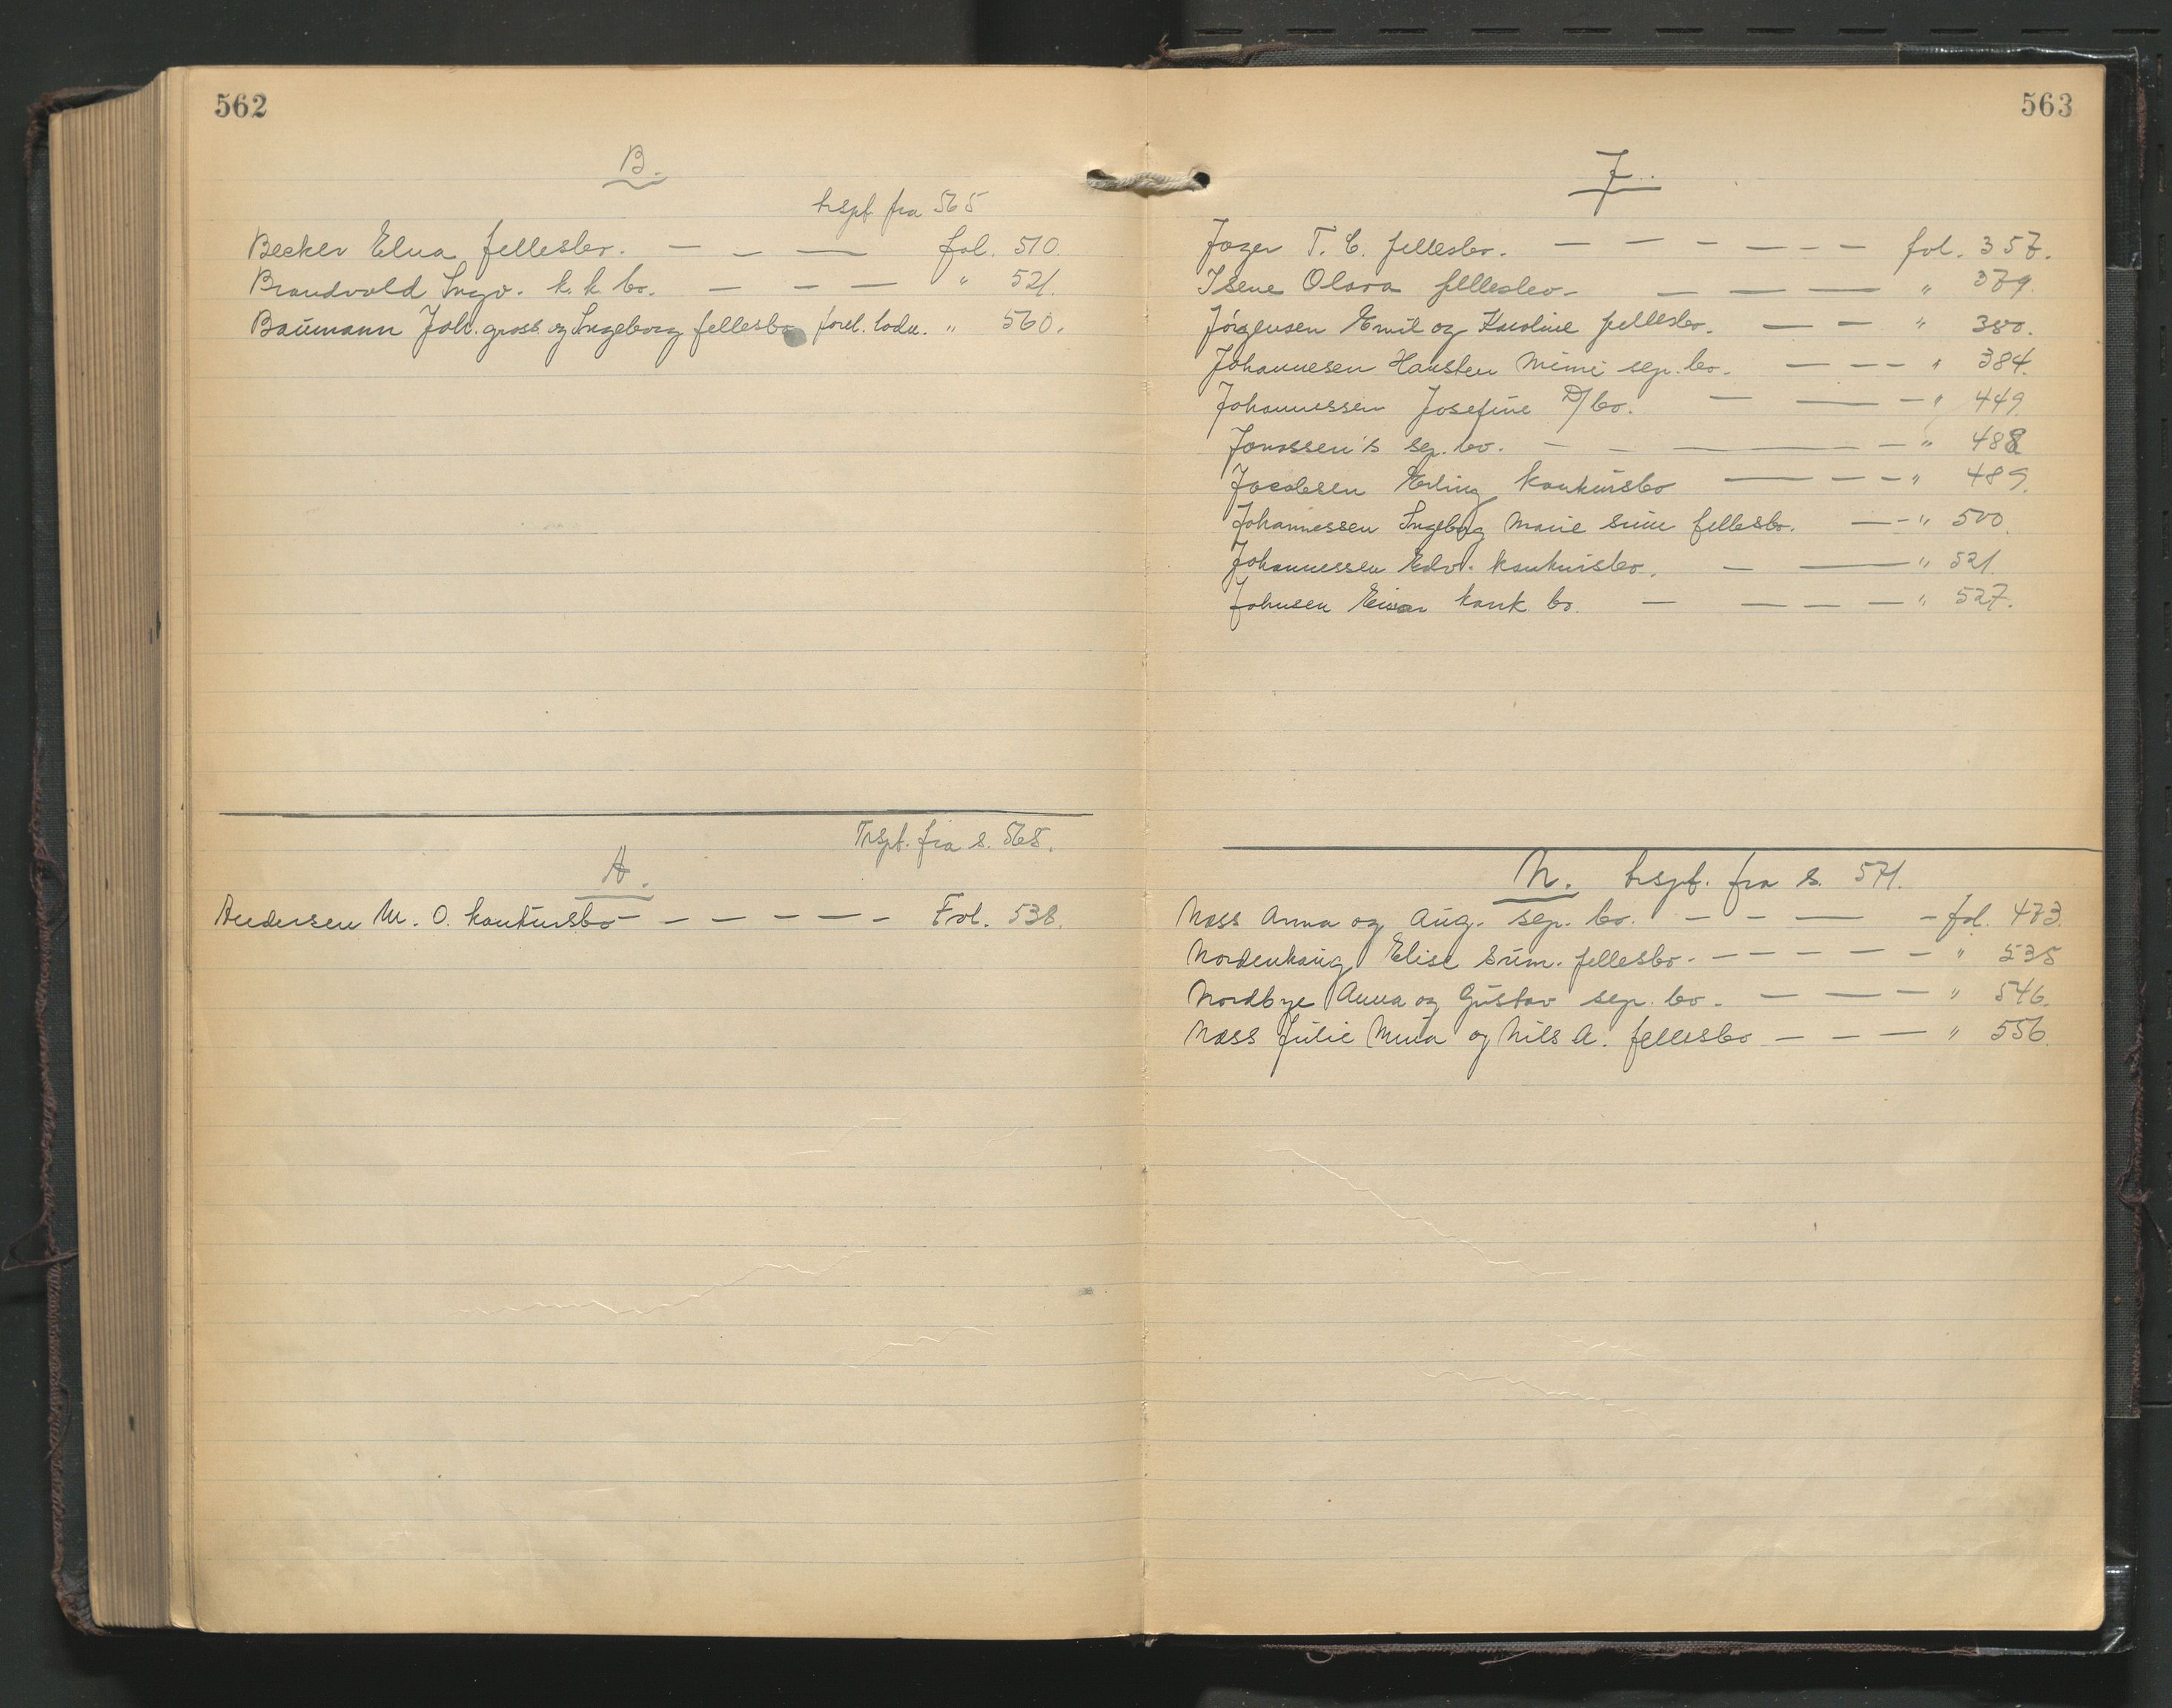 562
B.
trspt. fra 565
Becker Elna fellesbo. — — — fol. 510.
Brandvold Ingv. k. k. bo. — — — " 521.
Baumann Joh. gross. og Ingeborg fellesbo forel. lodn. " 560.
Trspt. fra s. 565.
A.
Andersen M. O. konkursbo — — — — — — Fol. 538.
563
J.
Jager T. C. fellesbo. — — — — — — fol. 357.
Isene Olava fellesbo — — — — " 379.
Jörgensen Emil og Karoline fellesbo. — — " 380.
Johannesen Hansten Mimi sep. bo. — — — " 384.
Johannessen Josefine D/bo. — — — " 449.
Jonassen's sep. bo. — — — — " 488
Jacobsen Erling konkursbo — — — — " 489.
Johannessen Ingebrg Marie sum fellesbo. — — " 500.
Johannessen Edv. konkursbo. — — " 521.
Johnsen Einar konk. bo. — — — — " 527.
N. trspt. fra s. 571.
Næss Anna og Aug. sep. bo. — — — — fol. 473.
Nordenhaug Elise sum. fellesbo. — — — — — " 535
Nordbye Anna og Gustav sep. bo. — — — " 546.
Næss Julie Mina og Nils A. fellesbo — — — " 556.